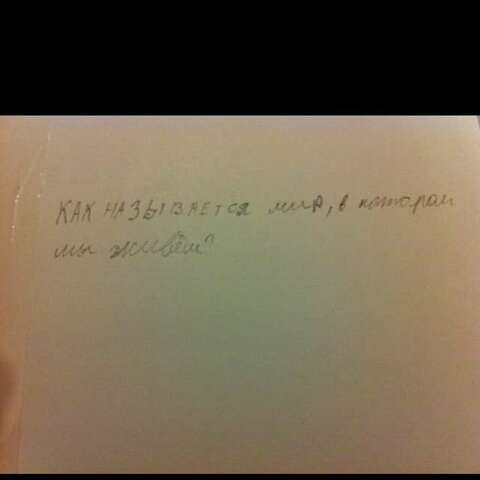 КАК НАЗЫВАЕТСЯ мир, в котором
мы живём?